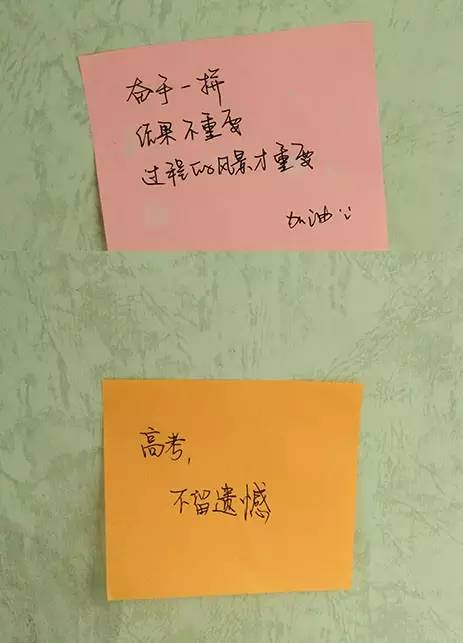 奋手一拼
结果不重要
过程的风景才重要
加油::
高考,
不留遗憾